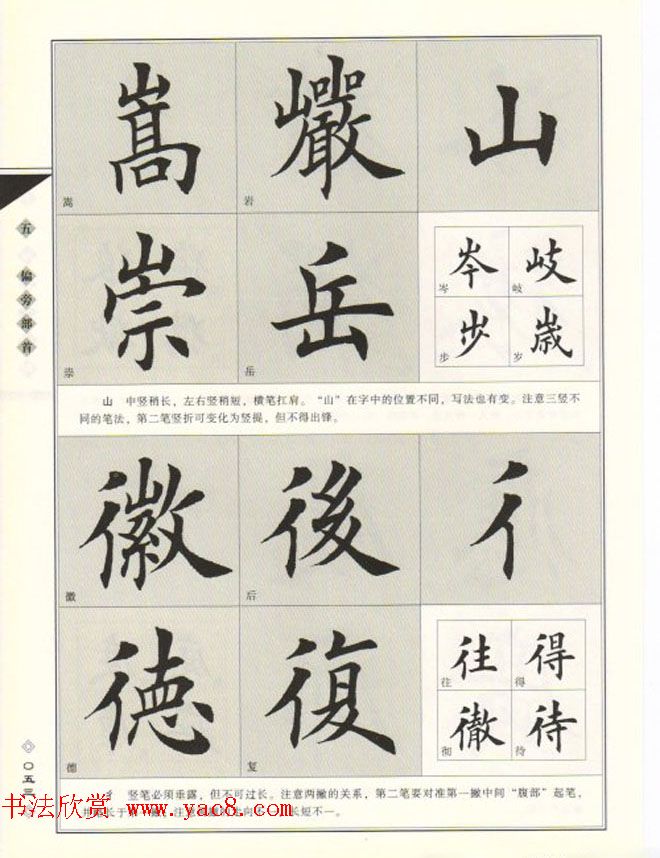 五 偏旁部首
〇五三
嵩 巖 山
嵩 岩
崇 岳
崇 岳
岑 岐
岑 岐
步 歲
步 岁
山 中竖稍长，左右竖稍短，横笔扛肩。“山”在字中的位置不同，写法也有变。注意三竖不
同的笔法，第二笔竖折可变化为竖提，但不得出锋。
徽 後 彳
徽 后
德 復
德 复
往 得
往 得
徹 待
彻 待
彳 竖笔必须垂露，但不可过长。注意两撇的关系，第二笔要对准第一撇中间“腹部”起笔，
长于 注意 向不一 长短不一。
书法欣赏 www.yac8.com